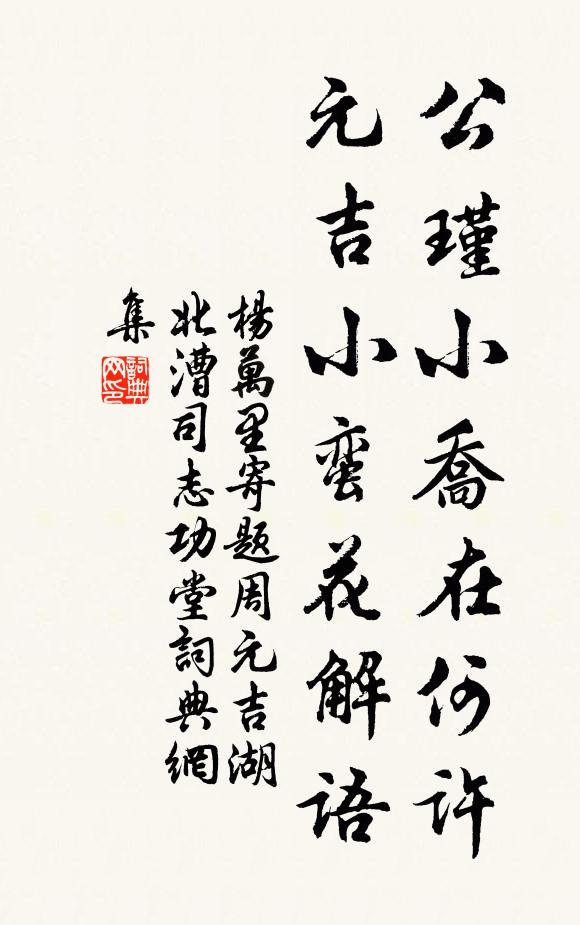 公瑾小喬在何許
元吉小蛮花解语
楊萬里寄题周元吉湖
北漕司志功堂詞典網
集
詞典
网印